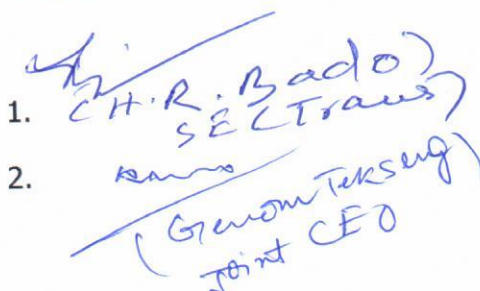 1.
CH.R.Bado)
SECTrans)
2.
(Genom Tekseng)
Joint CEO